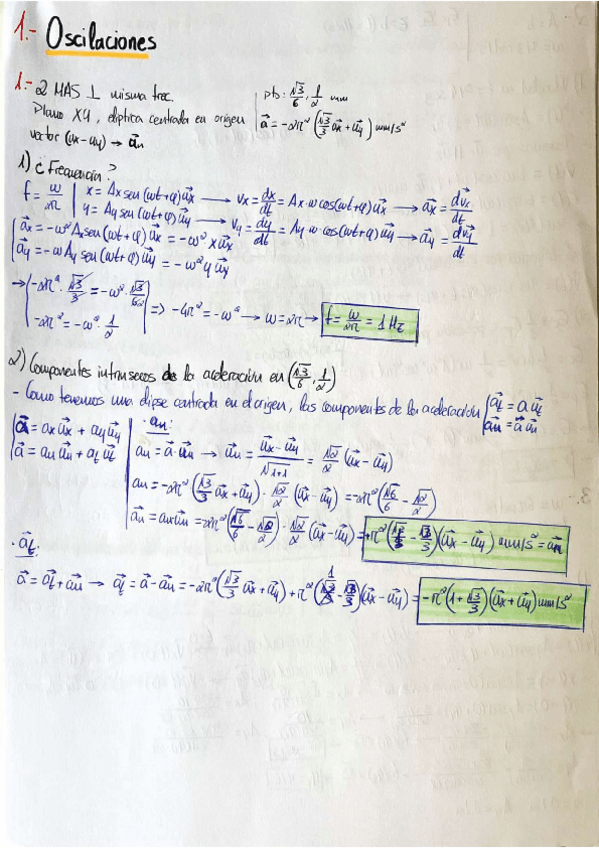 1.- Oscilaciones
1.- 2 MAS ⊥ misma frec.
Plano XY, elíptica centrada en origen
vector (ux - uy) → a⃗n
pto: √3/6, 1/2 mm
a⃗ = -2π² (√3/3 u⃗x + u⃗y) mm/s²
1) ¿Frecuencia?
f = ω/2π | x = Ax sen(ωt+φ) u⃗x → vx = dx/dt = Ax·ω cos(ωt+φ) u⃗x → a⃗x = dv⃗x/dt
y = Ay sen(ωt+φ) u⃗y → vy = dy/dt = Ay ω cos(ωt+φ) u⃗y → a⃗y = dv⃗y/dt
a⃗x = -ω² Ax sen(ωt+φ) u⃗x = -ω² x u⃗x
a⃗y = -ω Ay sen(ωt+φ) u⃗y = -ω² y u⃗y
→ -2π² · √3/3 = -ω² · √3/6
-2π² = -ω² · 1/2
=> -4π² = -ω² → ω = 2π → f = ω/2π = 1 Hz
2) Componentes intrínsecos de la aceleración en (√3/6, 1/2)
- Como tenemos una elipse centrada en el origen, las componentes de la aceleración { a⃗t = a u⃗t
a⃗n = a⃗ u⃗n
a⃗ = ax u⃗x + ay u⃗y
a⃗ = an u⃗n + at u⃗t
· an:
an = a⃗ · u⃗n → u⃗n = (u⃗x - u⃗y)/√1+1 = √2/2 (u⃗x - u⃗y)
an = -2π² (√3/3 u⃗x + u⃗y) · √2/2 (u⃗x - u⃗y) = -2π² (√6/6 - √2/2)
a⃗n = an u⃗n = -2π² (√6/6 - √2/2) · √2/2 (u⃗x - u⃗y) = +π² (1 - √3/3) (u⃗x - u⃗y) mm/s² = a⃗n
· a⃗t:
a⃗ = a⃗t + a⃗n → a⃗t = a⃗ - a⃗n = -2π² (√3/3 u⃗x + u⃗y) + π² (1 - √3/3) (u⃗x - u⃗y) = -π² (1 + √3/3) (u⃗x + u⃗y) mm/s²